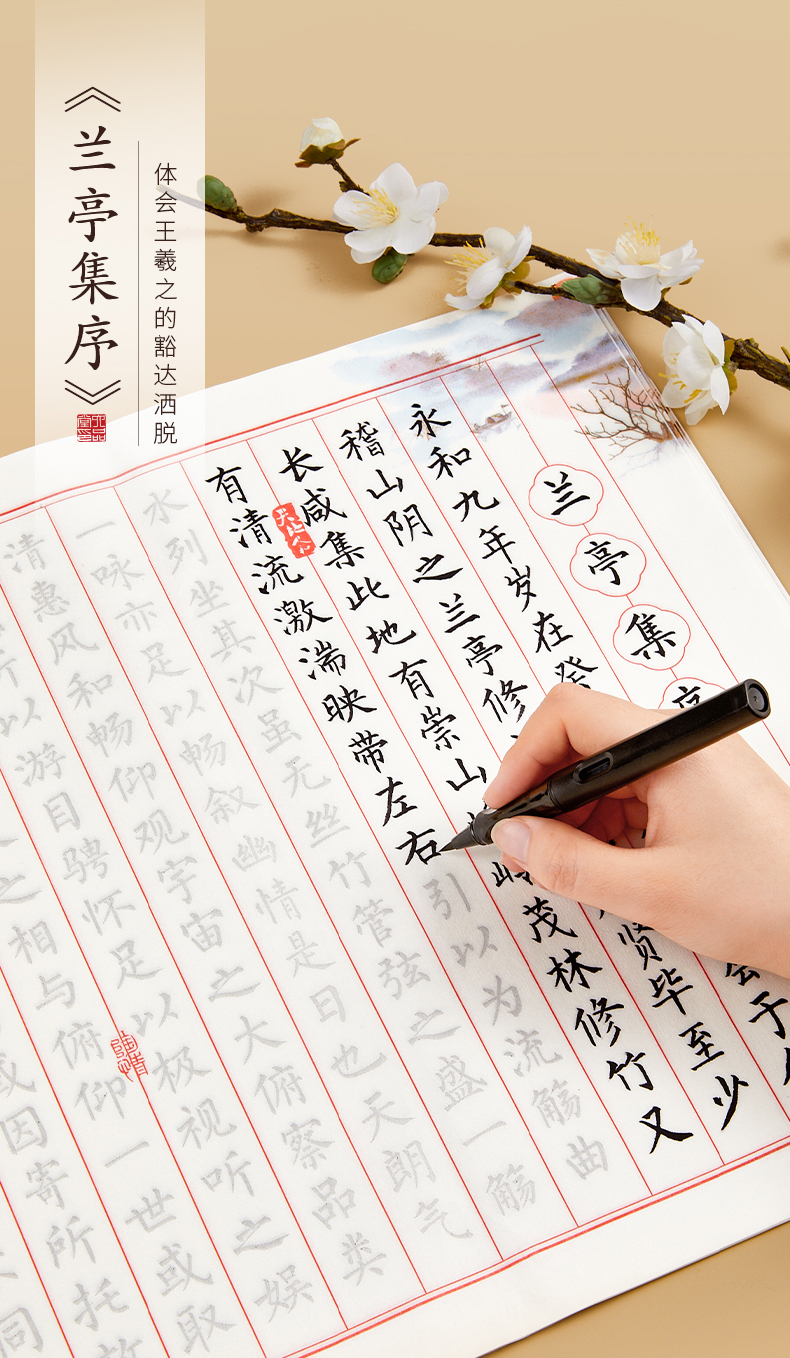 《兰亭集序》
体会王羲之的豁达洒脱
兰亭集序
永和九年岁在癸会于
稽山阴之兰亭修贤毕至少
长咸集此地有崇山岭茂林修竹又
有清流激湍映带左右引以为流觞曲
水列坐其次虽无丝竹管弦之盛一觞
一咏亦足以畅叙幽情是日也天朗气
清惠风和畅仰观宇宙之大俯察品类
所以游目骋怀足以极视听之娱
之相与俯仰一世或取
或因寄所托放
同
陶情